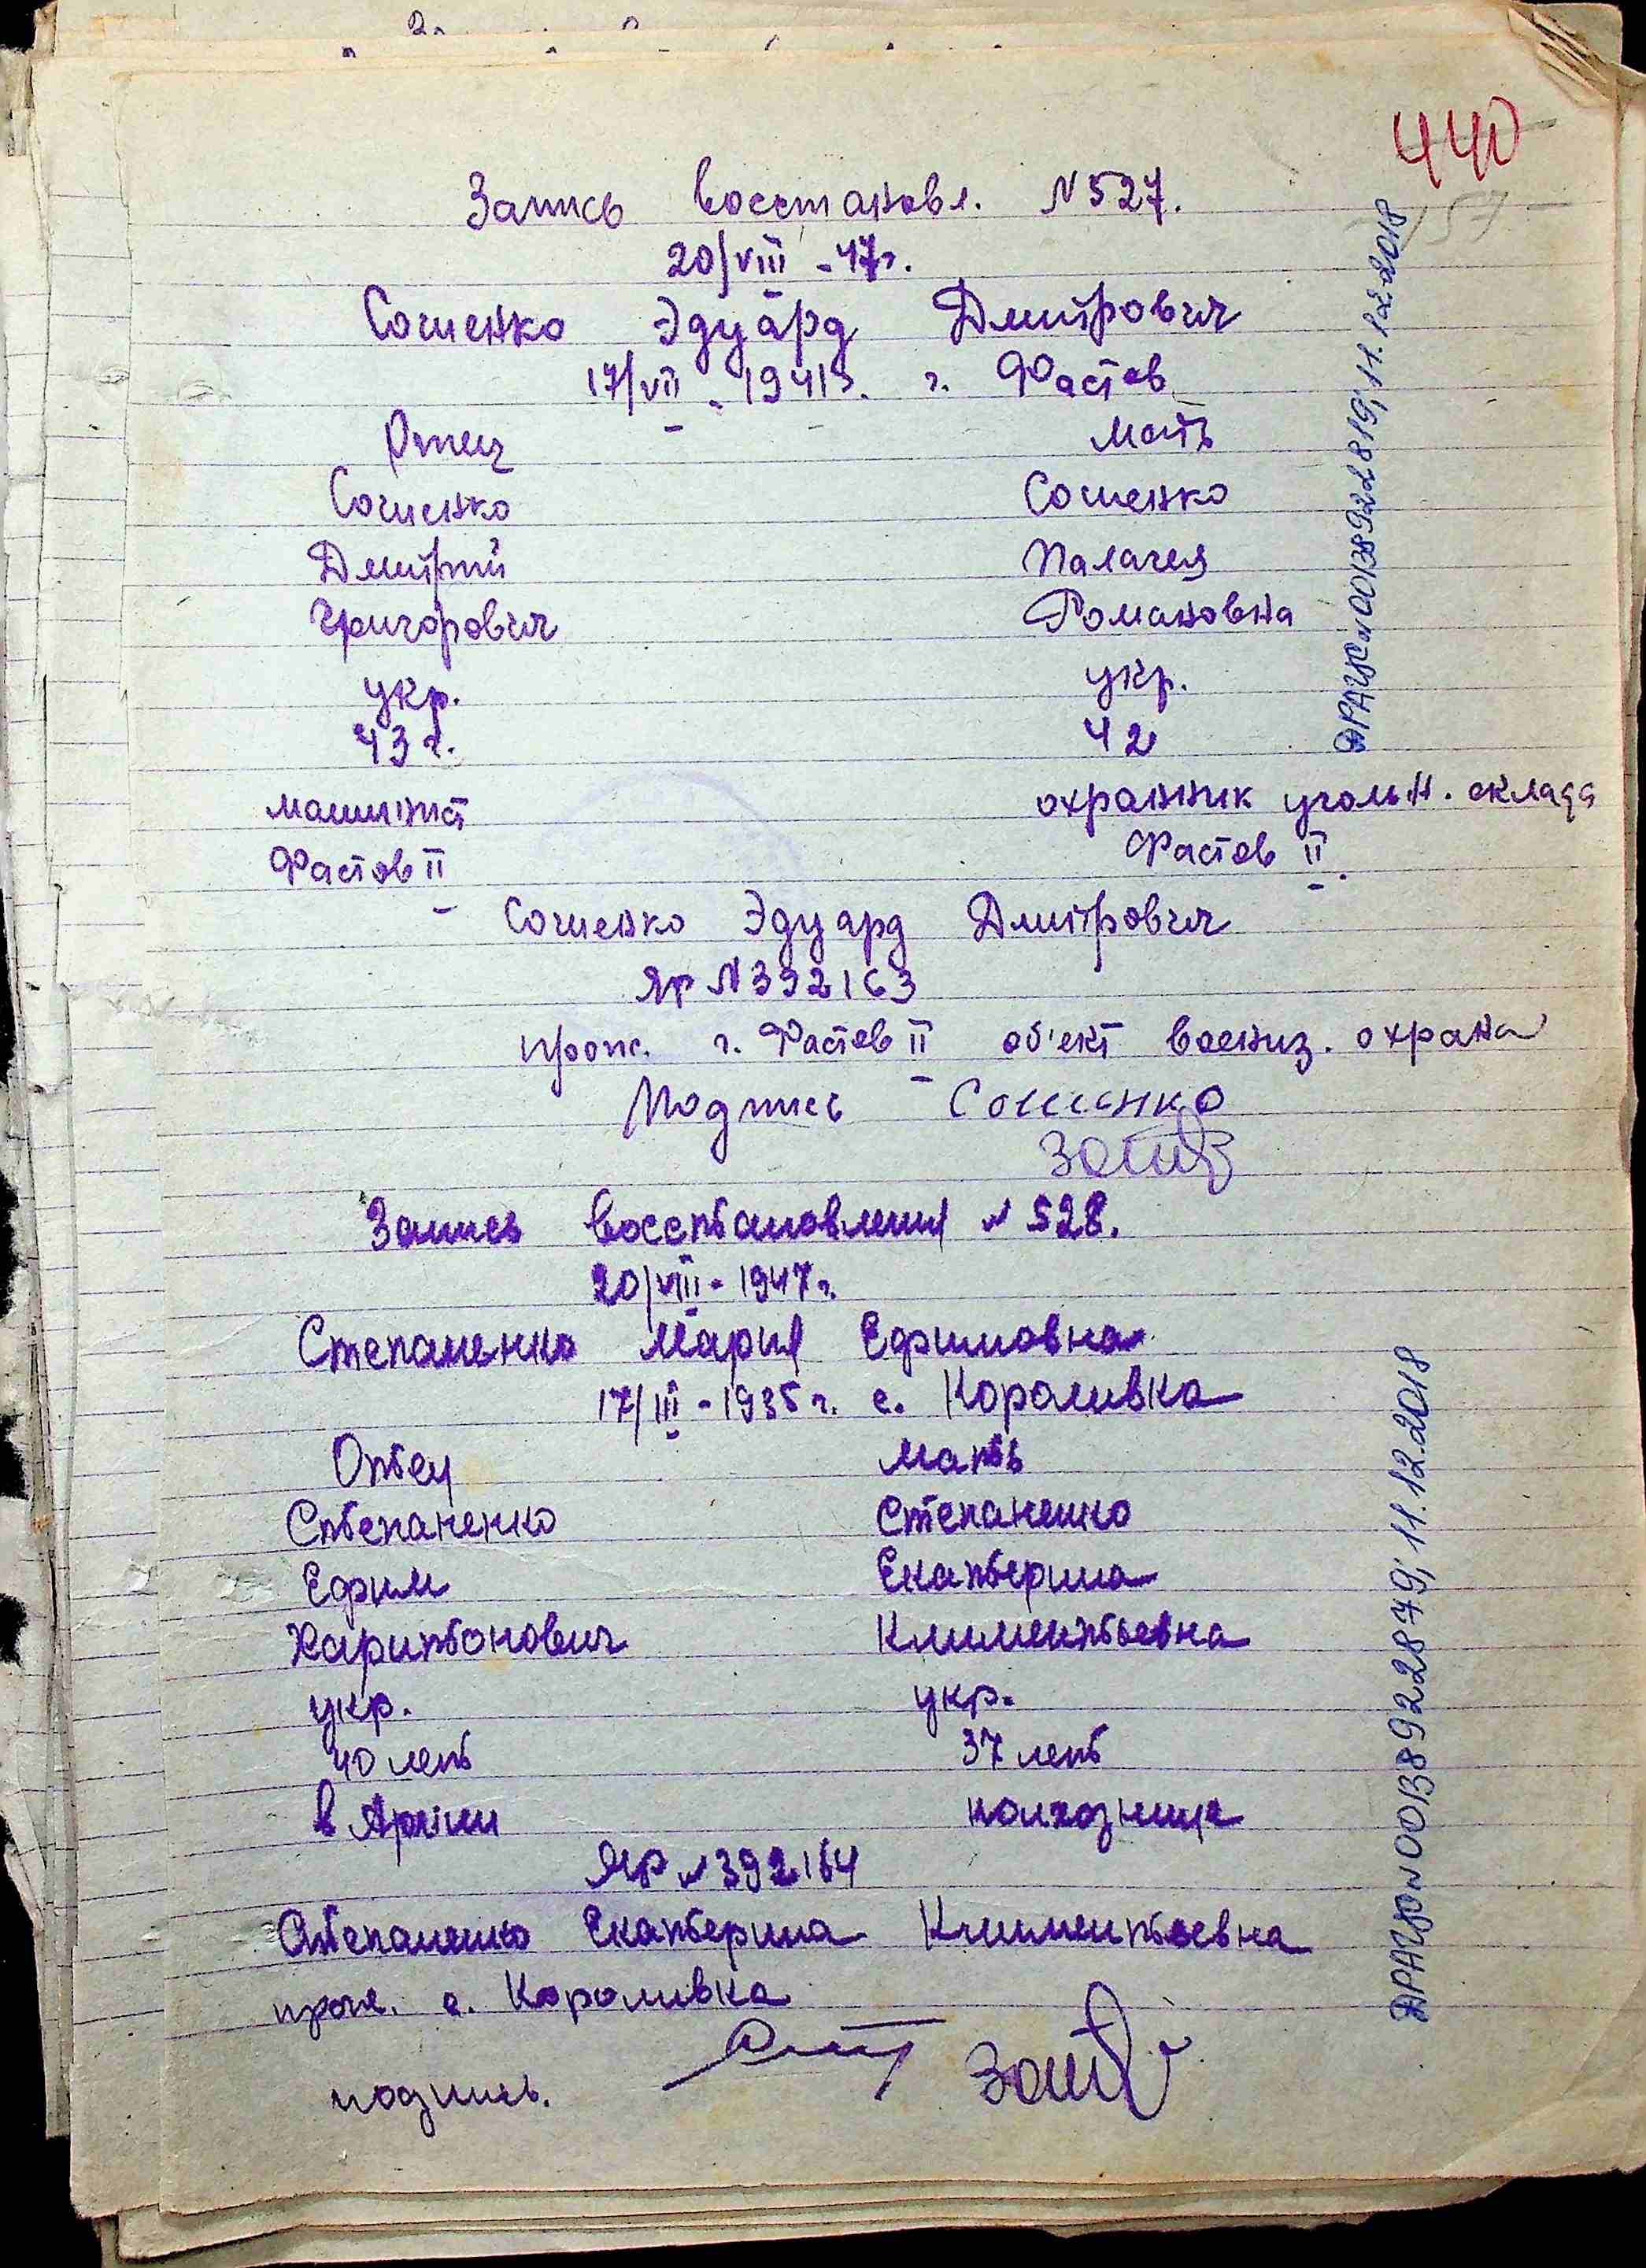 440
157
Запись восстановл. N 527.
20/VIII - 47г.
Сошенко Эдуард Дмитрович
17/VII - 1941г. г. Фастов
Отец Мать
Сошенко Сошенко
Дмитрий Палагея
Григорович Романовна
укр. укр.
43 г. 42
машинист охранник угольн. склада
Фастов II Фастов II.
Сошенко Эдуард Дмитрович
ЯР N 392163
прож. г. Фастов II об'ект воениз. охрана
Подпись Сошенко
Запись восстановления N 528.
20/VIII - 1947г.
Степаненко Мария Ефимовна
17/III - 1935 г. с. Короливка
Отец Мать
Степаненко Степаненко
Ефим Екатерина
Харитонович Климентьевна
укр. укр.
40 лет 37 лет
в Армии колхозница
ЯР N 392164
Степаненко Екатерина Климентьевна
прож. с. Короливка
подпись.
ДРАЦС N 00138922819; 11.12.2018
ДРАЦС N 00138922879; 11.12.2018